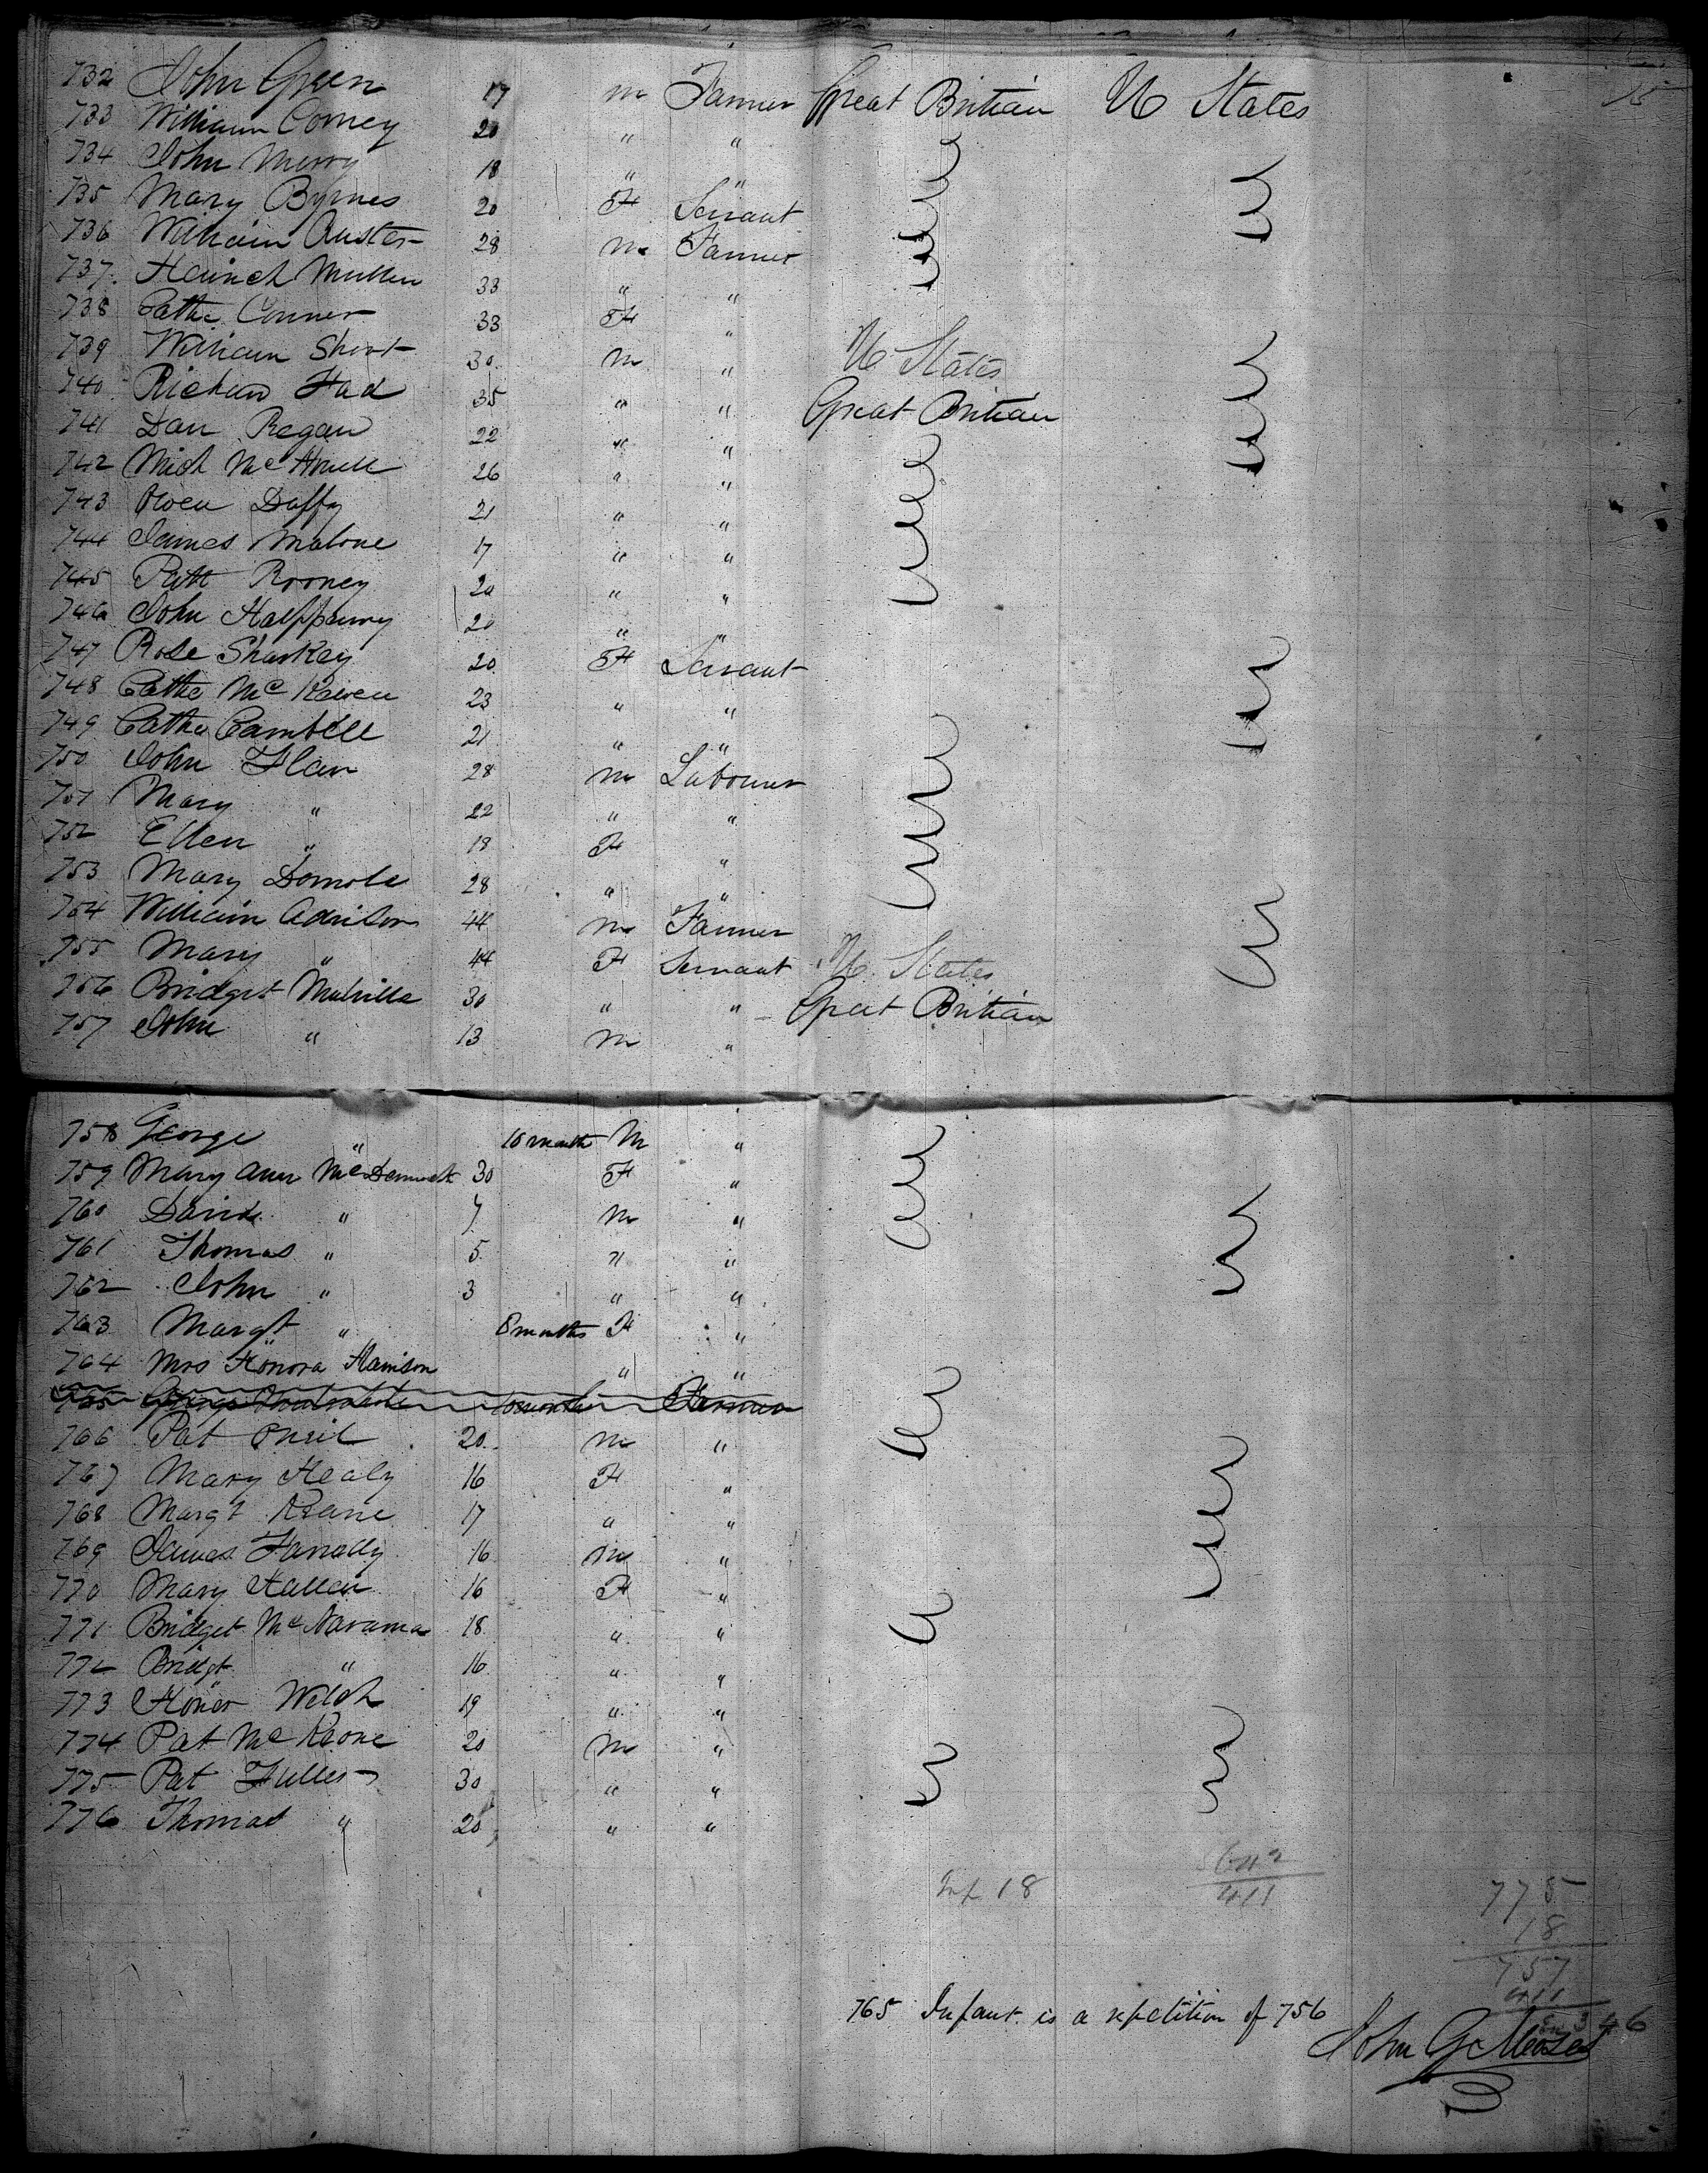 75
732 John Green 17 m Farmer Great Britian U States
733 William Corney 20 " "
734 John Merry 18 " "
735 Mary Byrnes 20 F Servant
736 William Auster 28 m Farmer
737 Heinrch Mullen 33 " "
738 Cathe Conner 33 F "
739 William Short 30 m " U States
740 Richard Had 35 " " Great Britian
741 Dan Regan 22 " "
742 Mich Mc 26 " "
743 Owen Duffy 21 " "
744 James Malone 17 " "
745 Patt Rooney 20 " "
746 John Halfpenny 20 " "
747 Rose Sharkey 20 F Servant
748 Cathe Mc 23 " "
749 Cathe Cambell 21 " "
750 John Flan 28 m Labourer
751 Mary " 22 " "
752 Ellen " 18 F "
753 Mary 28 " "
754 William Adnison 44 m Farmer
755 Mary " 44 F Servant U States
756 Bridget Mulville 30 " " Great Britian
757 John " 13 m "
758 George " 10 months M "
759 Mary Ann McDermott 30 F "
760 David " 7 m "
761 Thomas " 5 " "
762 John " 3 " "
763 Margt " 8 months F "
764 Mrs Honora Harrison " "
765 George 10 months Farmer
766 Pat Oneil 20 m "
767 Mary Healy 16 F "
768 Margt Keane 17 " "
769 James Farrally 16 m "
770 Mary Hallan 16 F "
771 Bridget McNavama 18 " "
772 Bridgt " 16 " "
773 Honer Welsh 19 " "
774 Pat McKeone 20 m "
775 Pat Fuller 30 " "
776 Thomas " 20 " "
Inf 18
411
775
18
757
411
346
765 Infant is a repetition of 756
John G Moses